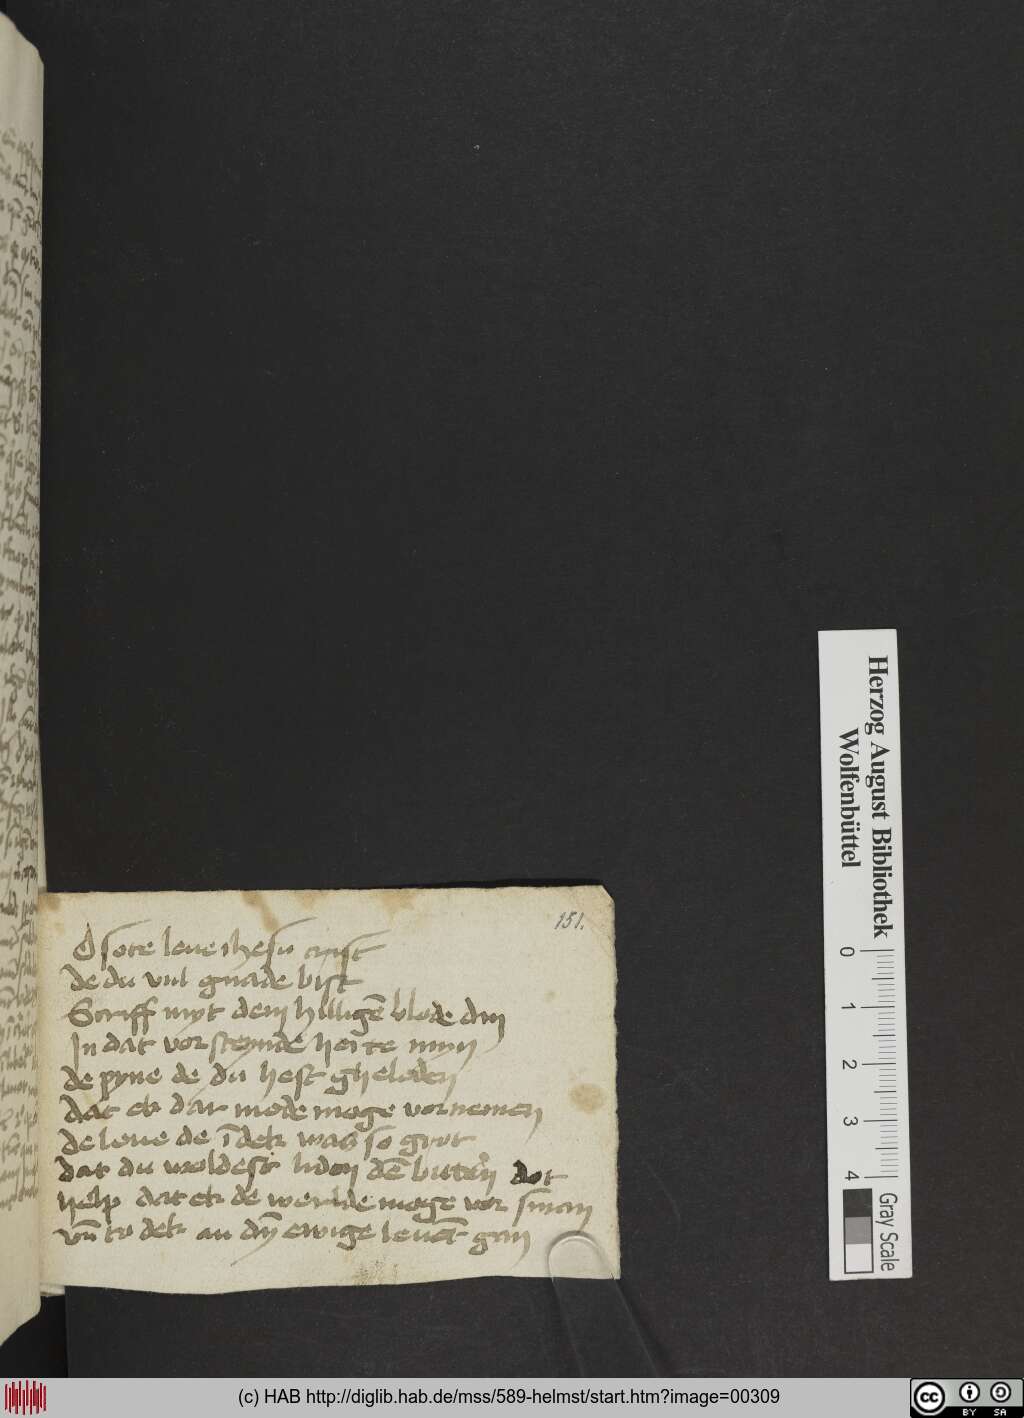 151.
O sote leue ihesu crist
de du vul gnade bist
Scriff myt dem hilligē blode din
In dat vorsteynde herte myn
de pyne de du hest gheleden
dat ek dar mede moge vornemen
de leue de ī dek was so grot
dat du woldest liden dē bittern dot
help dat ek de werlde moge vor sman
vn̄ to dek an dȳ ewige leuēt gan
Herzog August Bibliothek
Wolfenbüttel
0 1 2 3 4
Gray Scale
(c) HAB http://diglib.hab.de/mss/589-helmst/start.htm?image=00309
cc BY SA